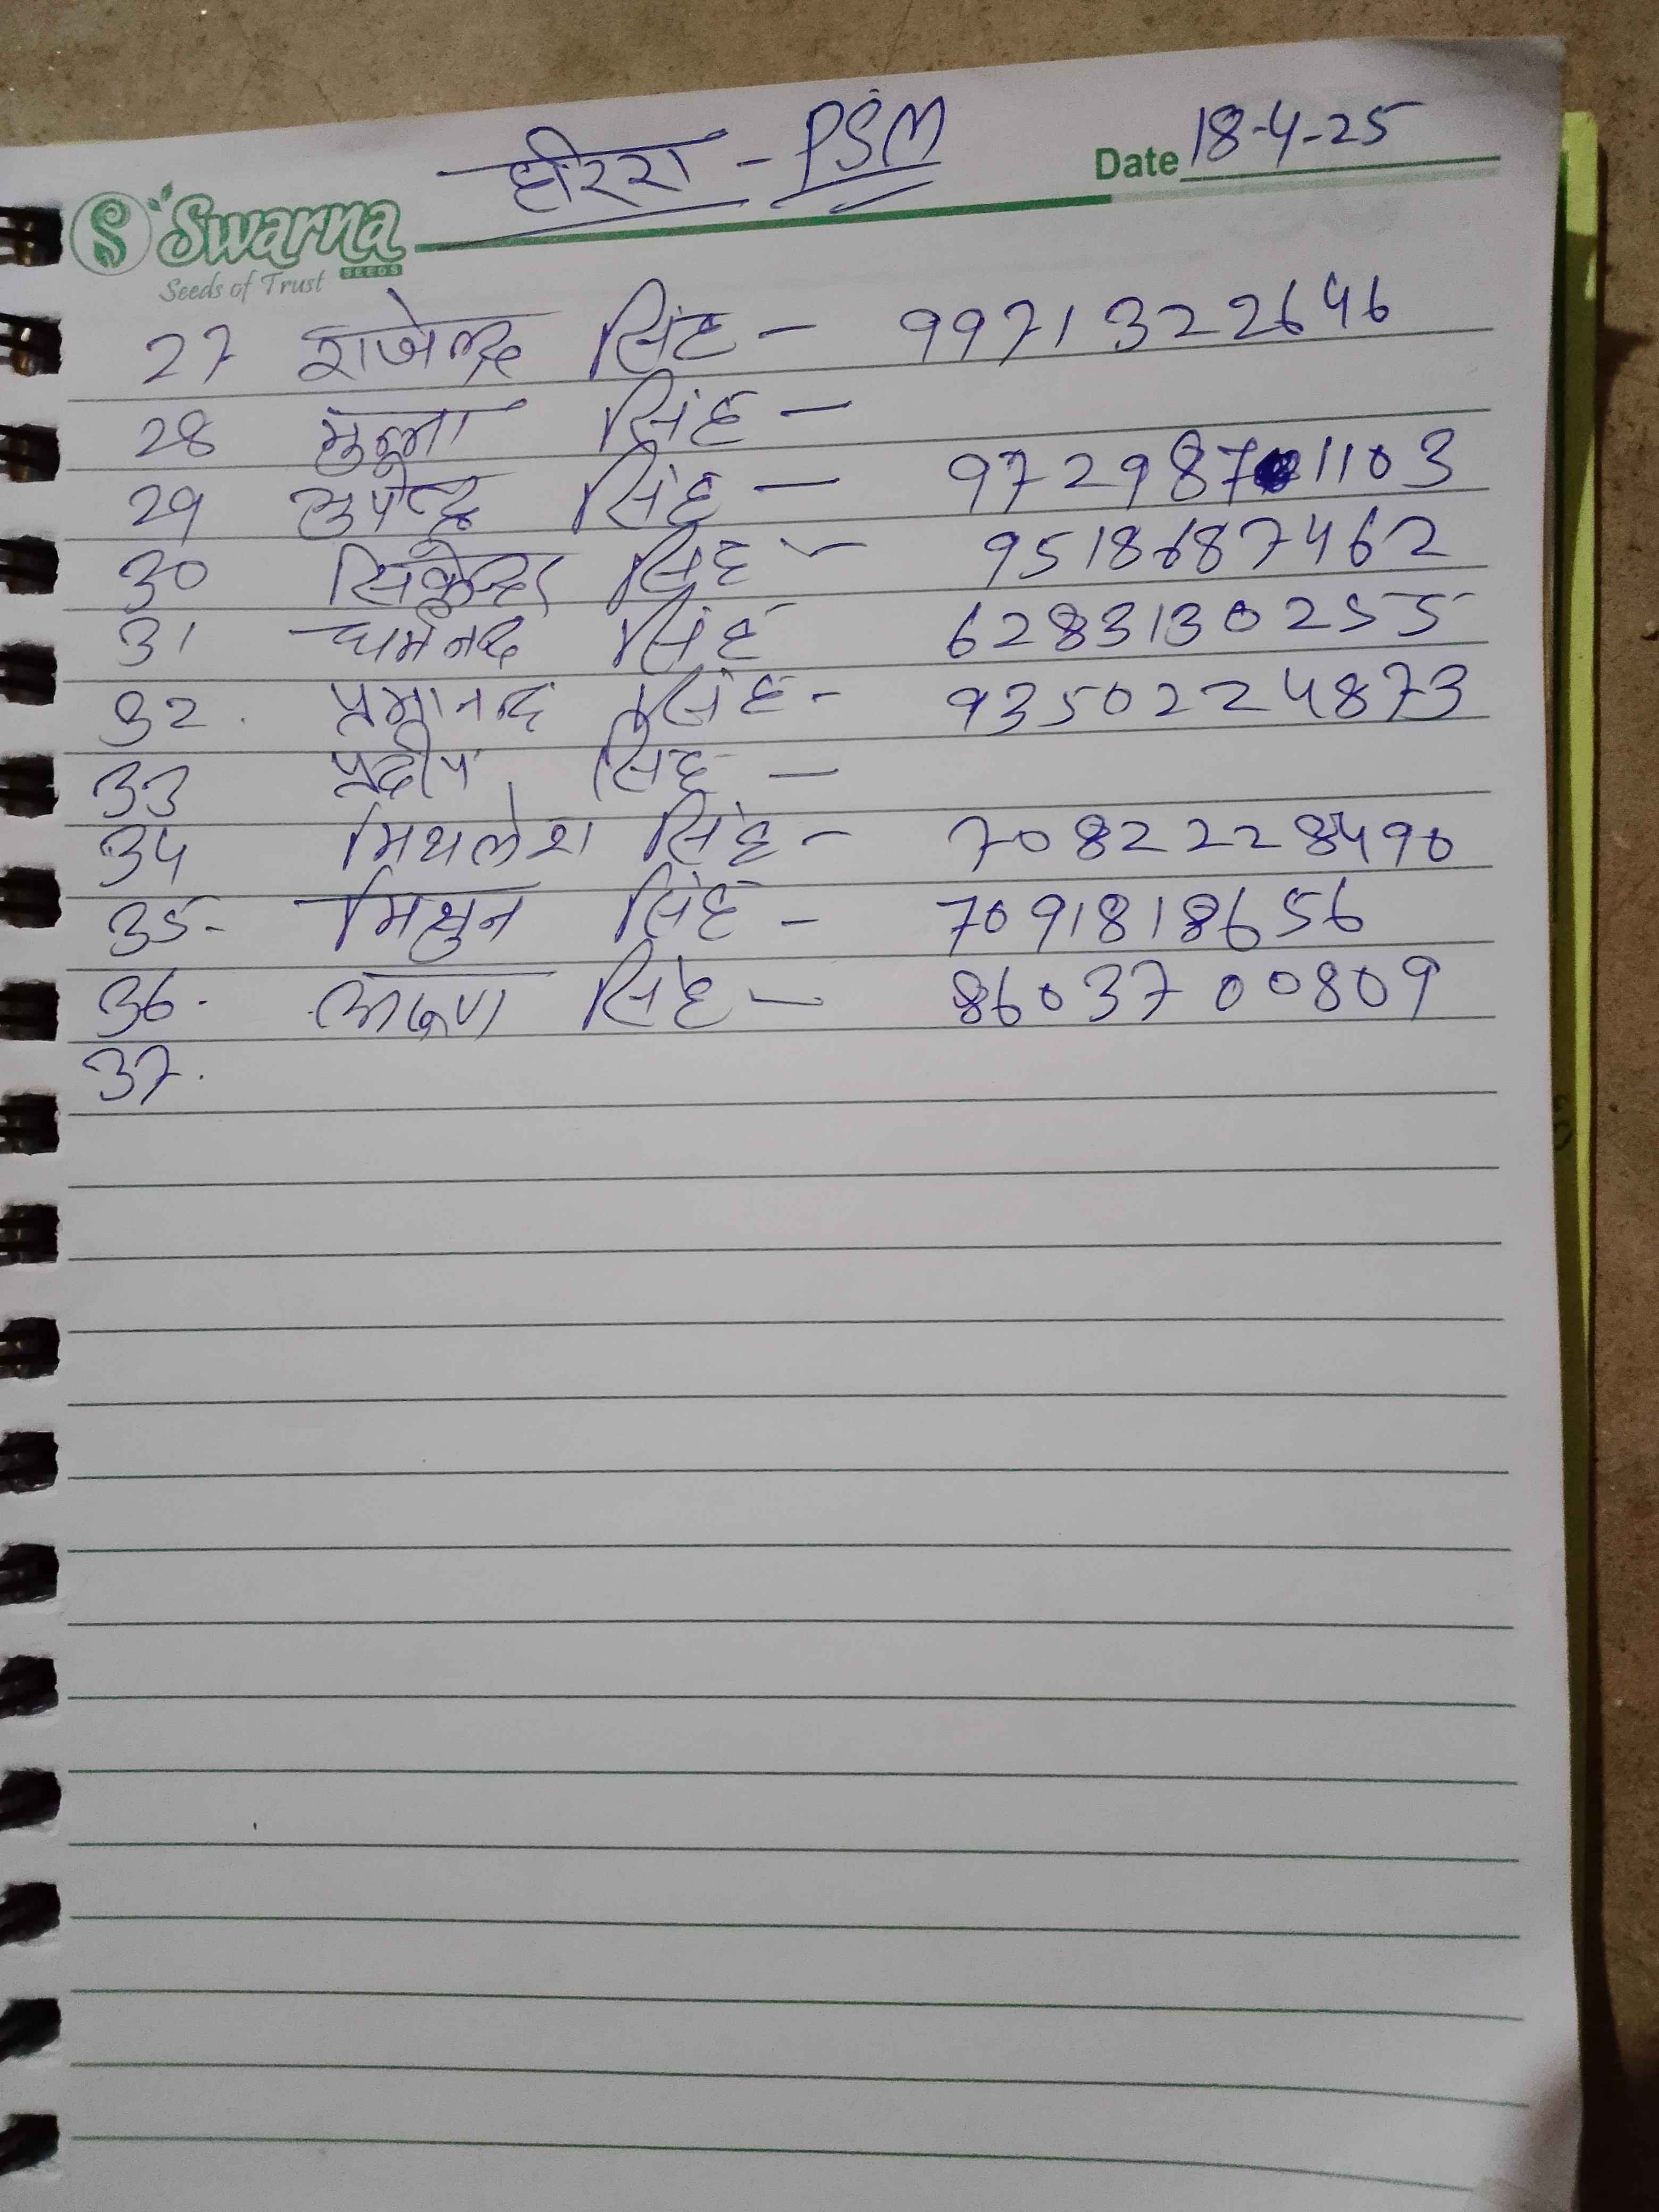 हीररा - PSM
Date 18-4-25
Swarna
SEEDS
Seeds of Trust
27 राजेन्द्र सिंह - 9971322646
28 मुन्ना सिंह -
29 सिंह - 9729871103
30 सिंह - 9518687462
31 सिंह 6283130255
32. प्रमानन्द सिंह - 9350224873
33 प्रदीप सिंह -
34 मिथलेश सिंह - 7082228490
35- मिथुन सिंह - 7091818656
36. सिंह - 8603700809
37.